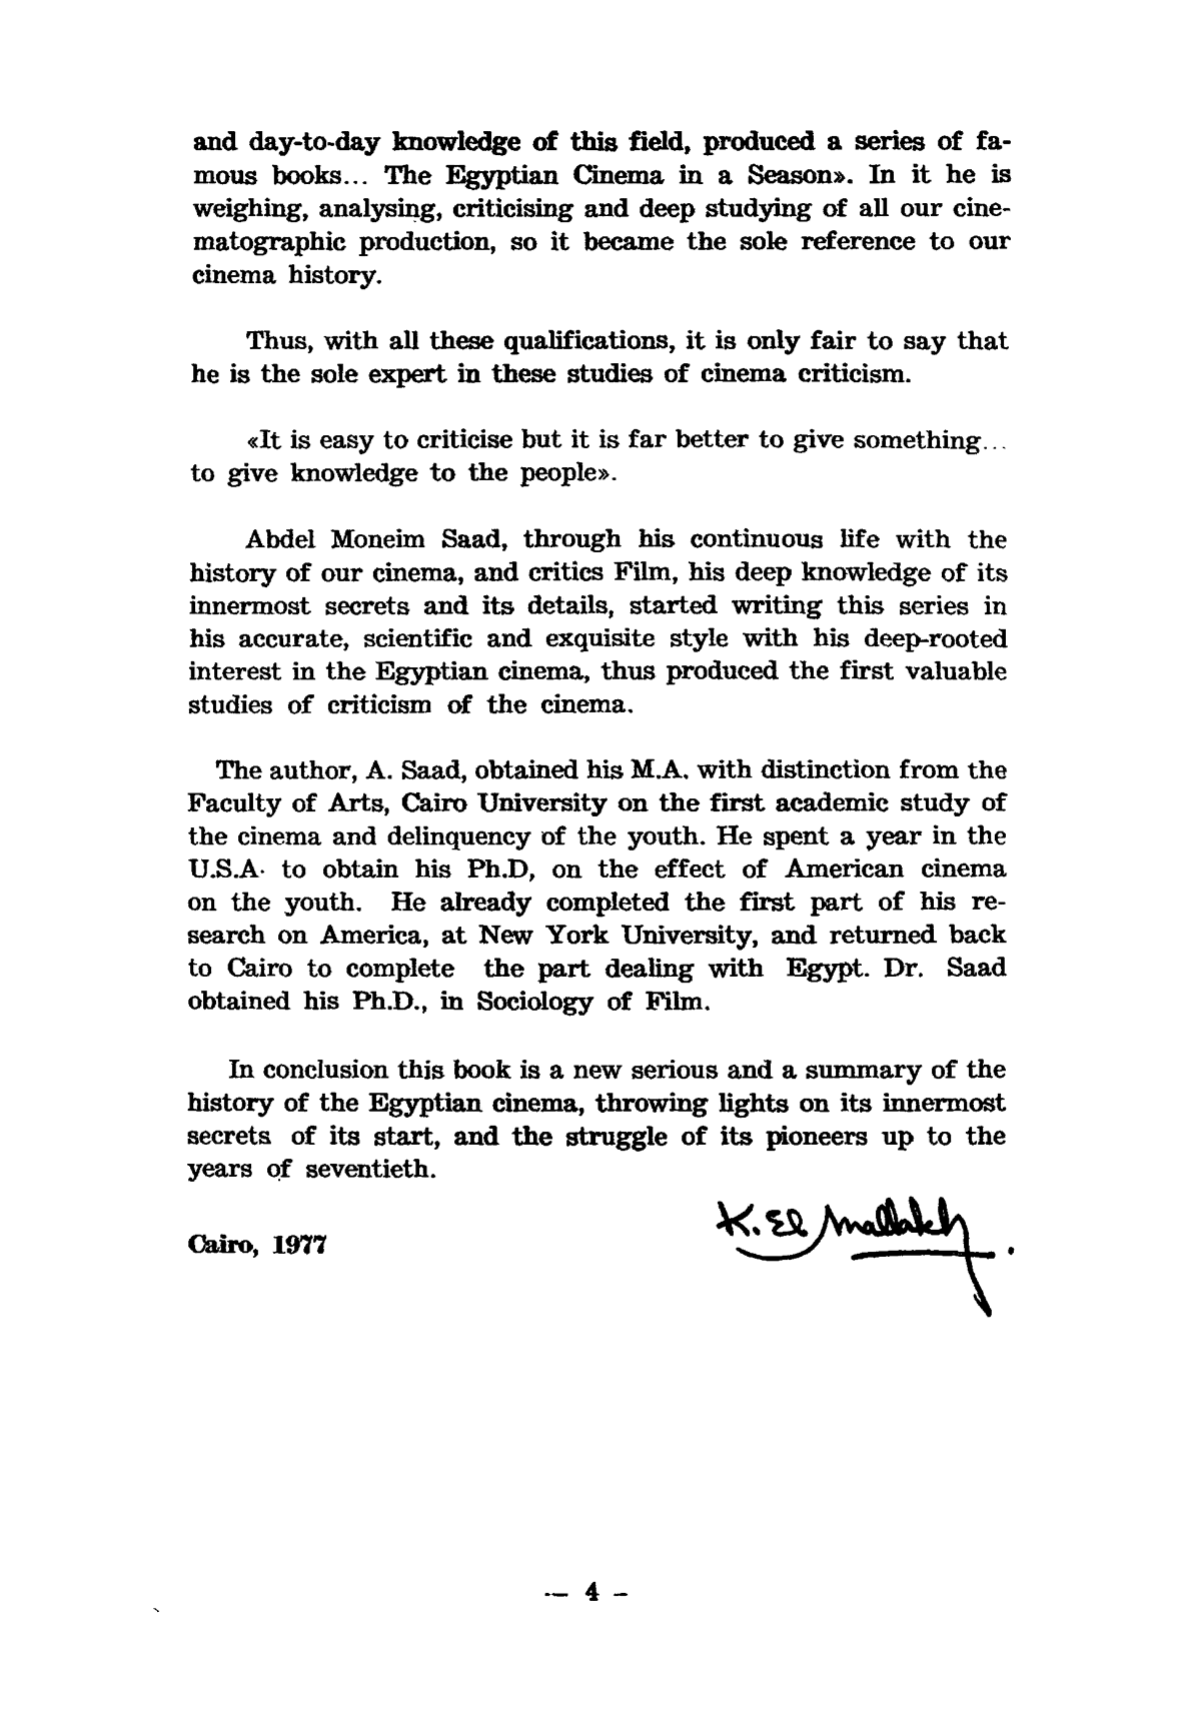 and day-to-day knowledge of this field, produced a series of fa-
mous books... The Egyptian Cinema in a Season». In it he is
weighing, analysing, criticising and deep studying of all our cine-
matographic production, so it became the sole reference to our
cinema history.
Thus, with all these qualifications, it is only fair to say that
he is the sole expert in these studies of cinema criticism.
«It is easy to criticise but it is far better to give something...
to give knowledge to the people».
Abdel Moneim Saad, through his continuous life with the
history of our cinema, and critics Film, his deep knowledge of its
innermost secrets and its details, started writing this series in
his accurate, scientific and exquisite style with his deep-rooted
interest in the Egyptian cinema, thus produced the first valuable
studies of criticism of the cinema.
The author, A. Saad, obtained his M.A. with distinction from the
Faculty of Arts, Cairo University on the first academic study of
the cinema and delinquency of the youth. He spent a year in the
U.S.A· to obtain his Ph.D, on the effect of American cinema
on the youth. He already completed the first part of his re-
search on America, at New York University, and returned back
to Cairo to complete the part dealing with Egypt. Dr. Saad
obtained his Ph.D., in Sociology of Film.
In conclusion this book is a new serious and a summary of the
history of the Egyptian cinema, throwing lights on its innermost
secrets of its start, and the struggle of its pioneers up to the
years of seventieth.
K. El Mallakh.
Cairo, 1977
— 4 -